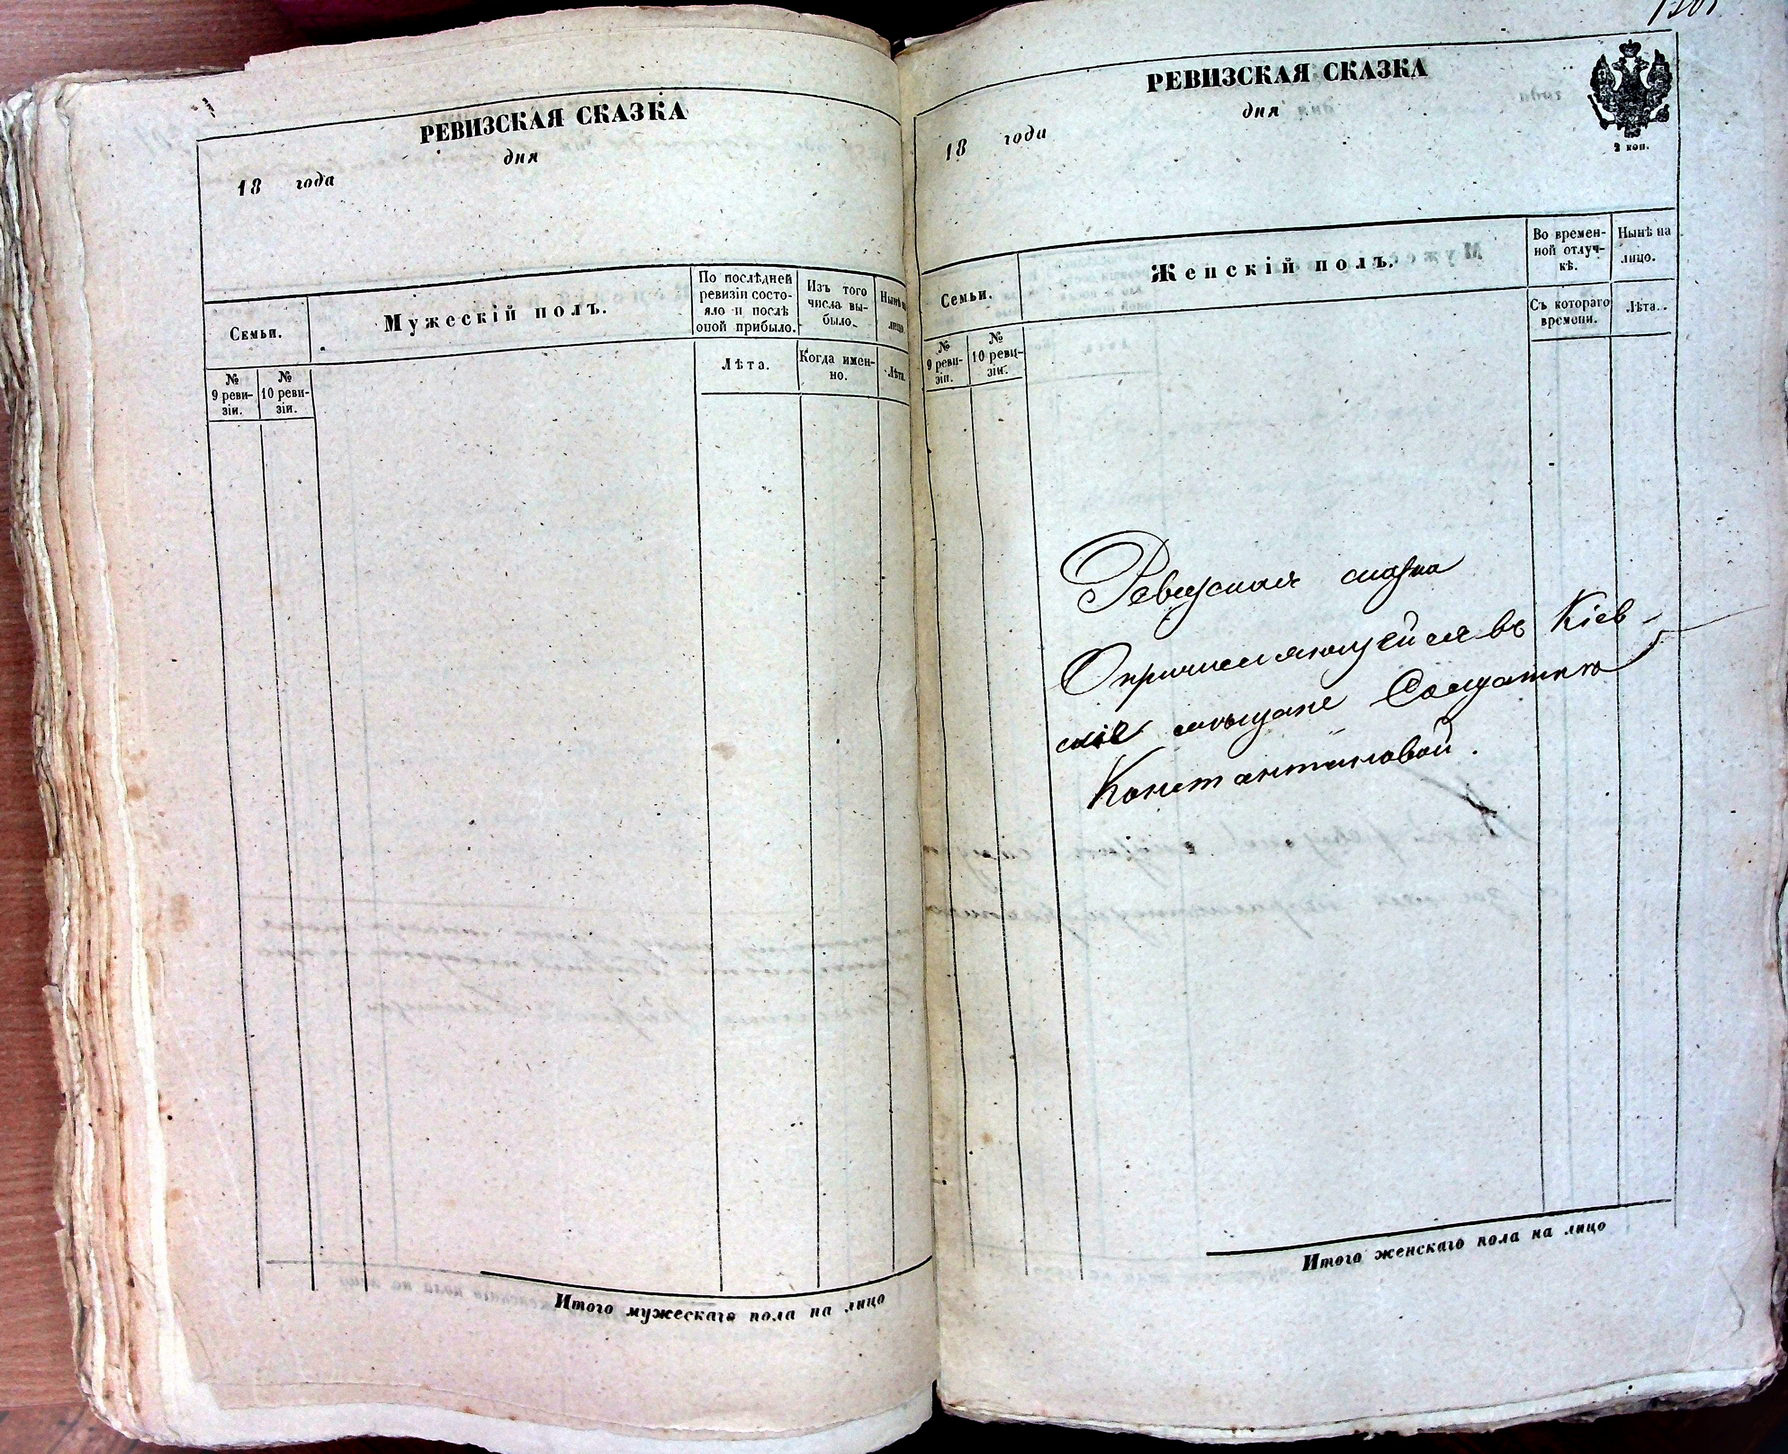 РЕВИЗСКАЯ СКАЗКА
дня
18 года
Семьи.
Мужескій полъ.
По послѣдней
ревизіи состо-
яло и послѣ
оной прибыло.
Изъ того
числа вы-
было.
Нынѣ на
лицо.
№
9 реви-
зіи.
№
10 реви-
зіи.
Лѣта.
Когда имен-
но.
Лѣта.
Итого мужескаго пола на лицо
РЕВИЗСКАЯ СКАЗКА
дня
18 года
2 коп.
Семьи.
Женскій полъ.
Во времен-
ной отлуч-
кѣ.
Нынѣ на
лицо.
№
9 реви-
зіи.
№
10 реви-
зіи.
Съ котораго
времени.
Лѣта.
Ревизская сказка
О причисляющейся въ Кіев-
скіе мѣщане Солдатки
Константиновой.
Итого женскаго пола на лицо